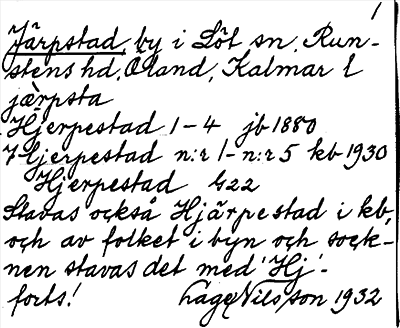 1
Järpstad, by i Löt sn, Run-
stens hd, Öland, Kalmar l
jæ̀rpsta
Hjerpestad 1-4 jb 1880
Hjerpestad n:r 1-n:r 5 kb 1930
Hjerpestad G22
Stavas också Hjärpestad i kb,
och av folket i byn och sock-
nen stavas det med 'Hj'-
forts! Lage Nilsson 1932